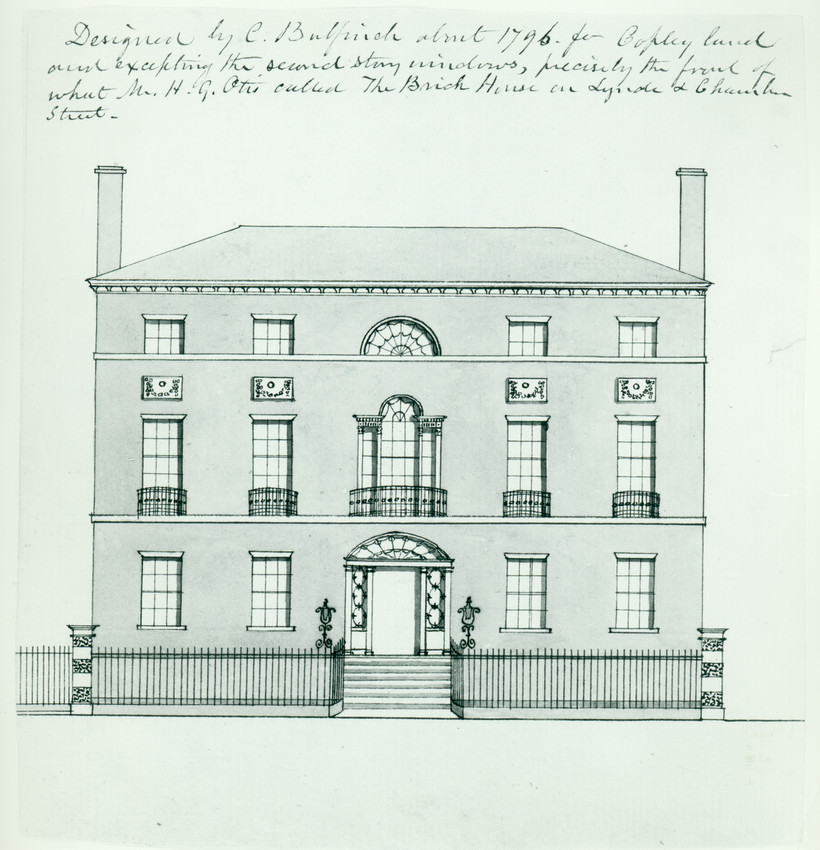 Designed by C. Bulfinch about 1796. for Copley land
and excepting the second story windows, precisely the front of
what Mr. H. G. Otis called The Brick House on Lynde & Chamber
Street.